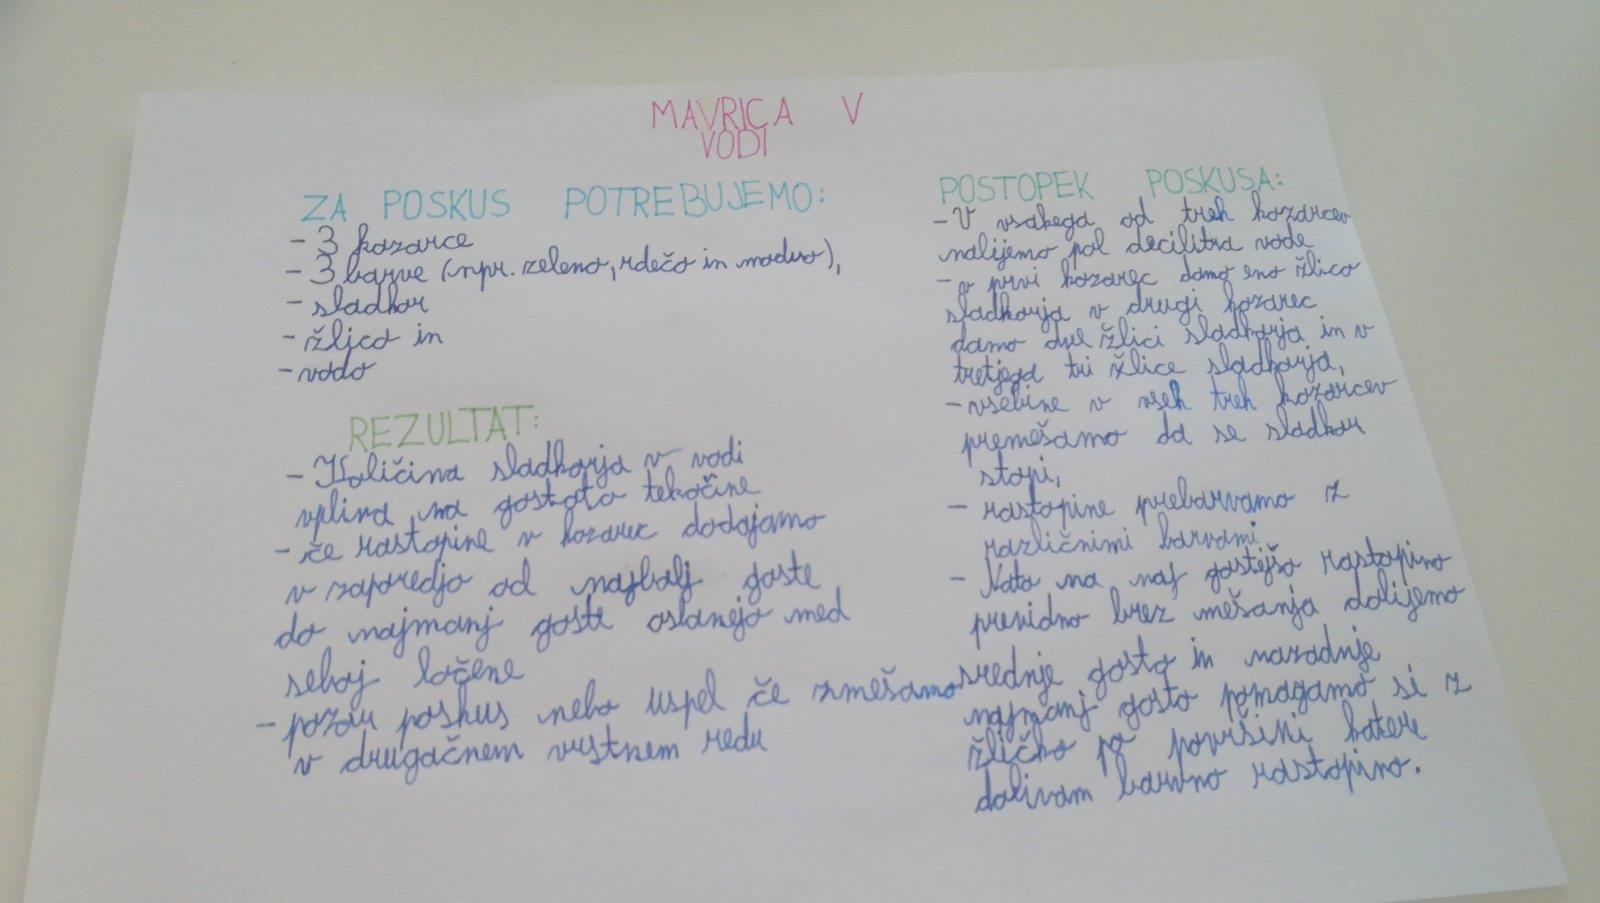 MAVRICA V
VODI
ZA POSKUS POTREBUJEMO:
- 3 kozarce
- 3 barve (npr. zeleno, rdečo in modro),
- sladkor
- žlico in
- vodo
REZULTAT:
- Količina sladkorja v vodi
vpliva na gostoto tekočine
- če rastopine v kozarec dodajamo
v zaporedjo od najbolj goste
do najmanj goste ostanejo med
seboj ločene
- pozor poskus nebo uspel če zmešamo
v drugačnem vrstnem redu
POSTOPEK POSKUSA:
- V vsakega od treh kozarcev
nalijemo pol decilitra vode
- v prvi kozarec damo eno žlico
sladkorja v drugi kozarec
damo dve žlici sladkorja in v
tretjega tri žlice sladkorja,
- vsebine v vseh treh kozarcev
premešamo da se sladkor
stopi,
- rastopine prebarvamo z
različnimi barvami
- Nato na naj gostejšo rastopino
previdno brez mešanja dolijemo
srednje gosto in nazadnje
najmanj gosto pomagamo si z
žličko po površini katere
dolivam barvno rastopino.